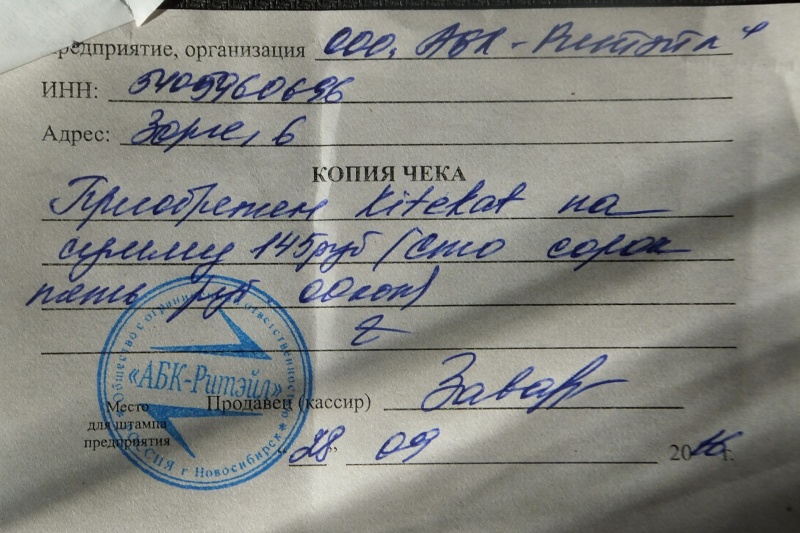 предприятие, организация ООО, АБК-Ритэйл"
ИНН: 5405960696
Адрес: Зорге, 6
КОПИЯ ЧЕКА
Приобретен Kitekat на
сумму 145 руб (сто сорок
пять руб 00 коп)
«АБК-Ритэйл»
Общество с ограниченной ответственностью
РОССИЯ г Новосибирск
Продавец (кассир)
Место
для штампа
предприятия
"28" 09 2016 г.